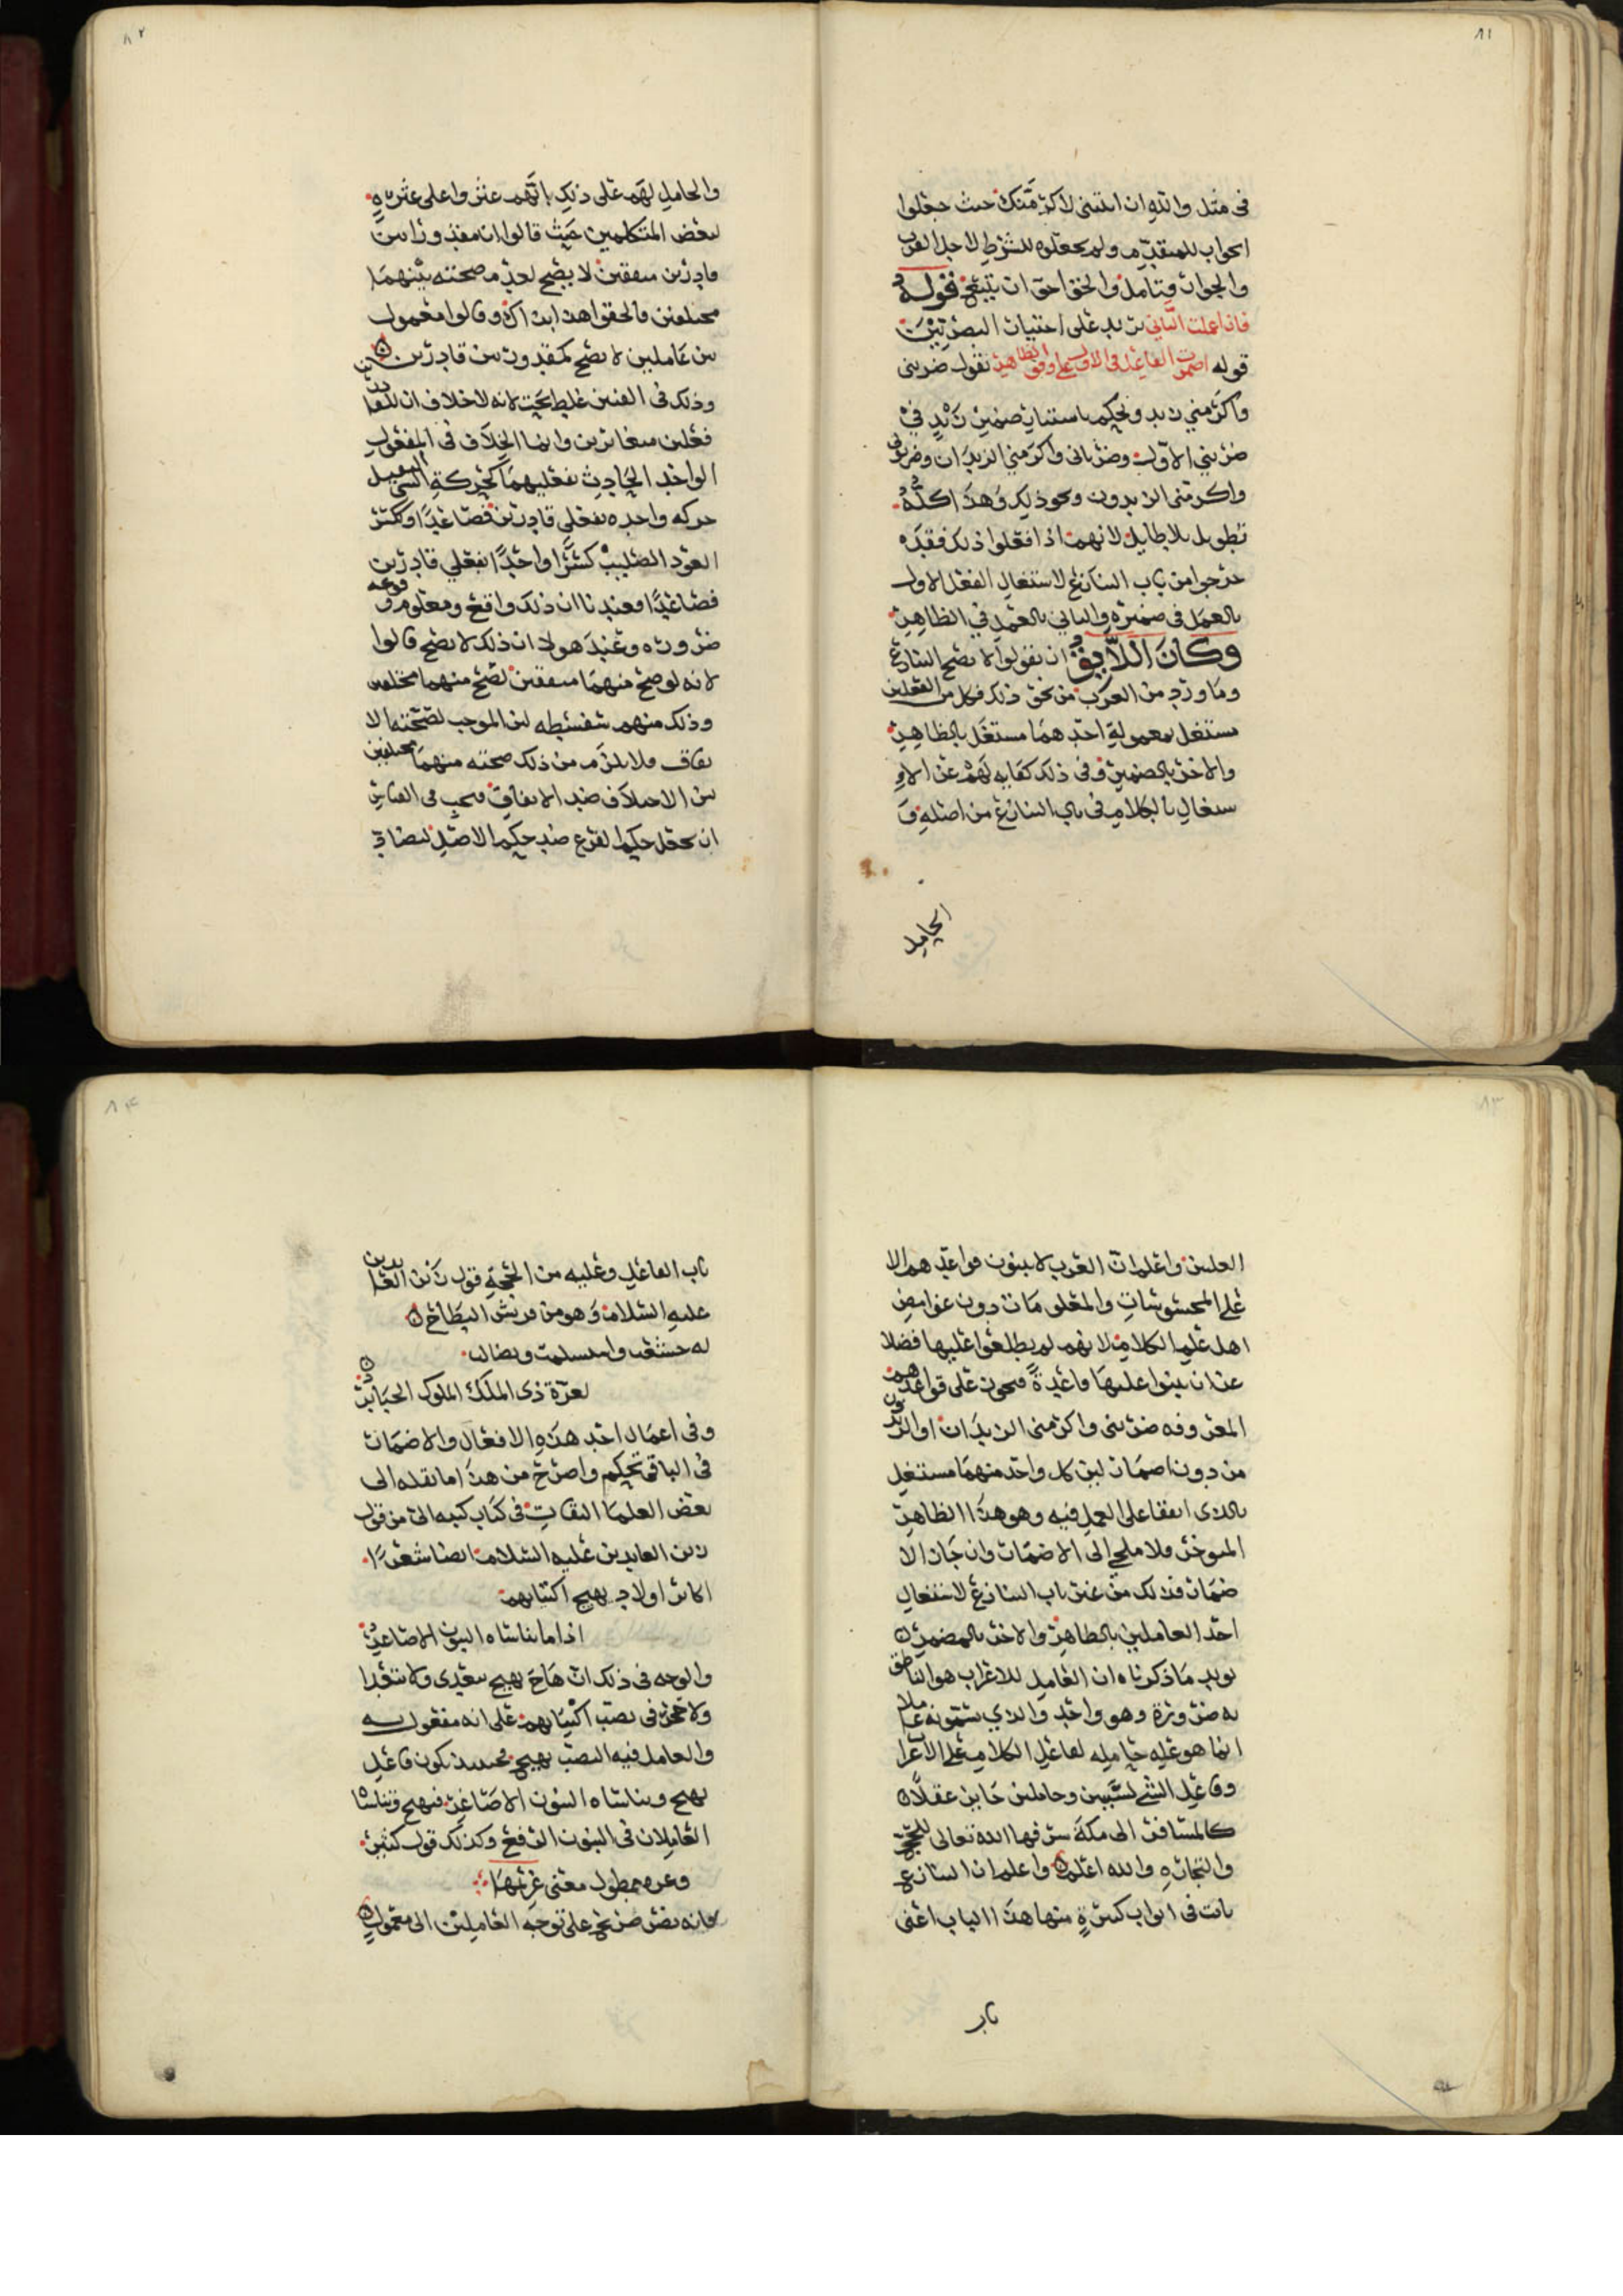 ٨١
في مثل والله ان اتيتني لاكرمنك حيث جعلوا
الجواب للمتقدم ولم يجعلوه للشرط لاجل القرب
والجوار فتامل والحق احق ان يتبع قوله
فان اعملت الثاني يريد على اختيار البصريين
قوله اضمرت الفاعل في الاول على وفق الظاهر تقول ضربني
واكرمني زيد ويحكم باستتار ضمير زيد في
ضربني الاول وضرباني واكرمني الزيدان وضربوني
واكرمني الزيدون ونحو ذلك وهذا كله
تطويل بلا طايل لانهم اذا فعلوا ذلك فقد
خرجوا من باب التنازع لاشتغال الفعل الاول
بالعمل في ضميره والثاني بالعمل في الظاهر
وكان اللايق ان يقولوا لا يصح التنازع
وما ورد من العرب من نحو ذلك فكل من الفعلين
مشتغل بمعموله احدهما مشتغل بالظاهر
والاخر بالضمير وفي ذلك كفايه لهم عن الا
شتغال بالكلام في باب التنازع من اصله و
الحامل
٨٢
والحامل لهم على ذلك انهم عثروا على عثرة
لبعض المتكلمين حيث قالوا ان مقدورا بين
قادرين متفقين لا يصح لعدم صحته بينهما
مختلفين فالحقوا هذا بذاك وقالوا معمول
بين عاملين لا يصح كمقدور بين قادرين
وذلك في الفنين غلط بحت لانه لا خلاف ان للقادرين
فعلين متغايرين وانما الخلاف في المفعول
الواحد الحادث بفعليهما كحركة الثقيل
حركه واحده بفعلي قادرين فصاعدا وككسر
العود الصليب كسرا واحدا بفعلي قادرين
فصاعدا فعندنا ان ذلك واقع ومعلوم وقوعه
ضرورة وعند هولا ان ذلك لا يصح قالوا
لانه لو صح منهما متفقين لصح منهما مختلفين
وذلك منهم سفسطه لان الموجب لصحته الا
تفاق فلا يلزم من ذلك صحته منهما مختلفين
لان الاختلاف ضد الاتفاق فيجب في القياس
ان يجعل حكم الفرع ضد حكم الاصل لتضاد
٨٣
العلتين واعلم ان العرب لا يبنون قواعدهم الا
على المحسوسات والمعلومات دون غوامض
اهل علم الكلام لانهم لم يطلعوا عليها فضلا
عن ان يبنوا عليها قاعدة فيجوز على قواعدهم
المعروفه ضربني واكرمني الزيدان او الزيدون
من دون اضمار لان كل واحد منهما مشتغل
بالذي اتفقا على العمل فيه وهو هذا الظاهر
المتوخر فلا ملجي الى الاضمار وان جاز الا
ضمار فذلك من غير باب التنازع لاشتغال
احد العاملين بالظاهر والاخر بالمضمر
يويد ما ذكرناه ان العامل للاعراب هو الناطق
به ضرورة وهو واحد والذي سموه عاملا
انما هو علة حامله لفاعل الكلام على الاعراب
وفاعل الشي لسببين وحاملين جايز عقلا
كالمسافر الى مكة شرفها الله تعالى للحج
والتجارة والله اعلم واعلم ان التنازع
يات في ابواب كثيرة منها هذا الباب اعني
باب
٨٤
باب الفاعل وعليه من الحجة قول زين العابدين
عليه السلام وهو من قريش البطاح
له خشعت واستسلمت وتضالت
لعزة ذي الملك الملوك الجبابر
وفي اعمال احد هذه الافعال والاضمار
في الباقي تحكم واصرح من هذا ما نقله الي
بعض العلما الثقات في كتاب كتبه الي من قول
زين العابدين عليه السلام ايضا شعرا
اكابر اولاد يهيج اكتئابهم
اذا ما تناساه البنون الاصاغر
والوجه في ذلك ان هاج يهيج يتعدى ولا يتعدا
ولا حجر في نصب اكتيابهم على انه مفعول به
والعامل فيه النصب يهيج فحينئذ يكون فاعل
يهيج وتناساه البنون الاصاغر فيهيج وتناساه
العاملان في البنون الرفع وكذلك قول كثير
وعزه ممطول معنى غريمها
فانه نص صريح على توجه العاملين الى معمول